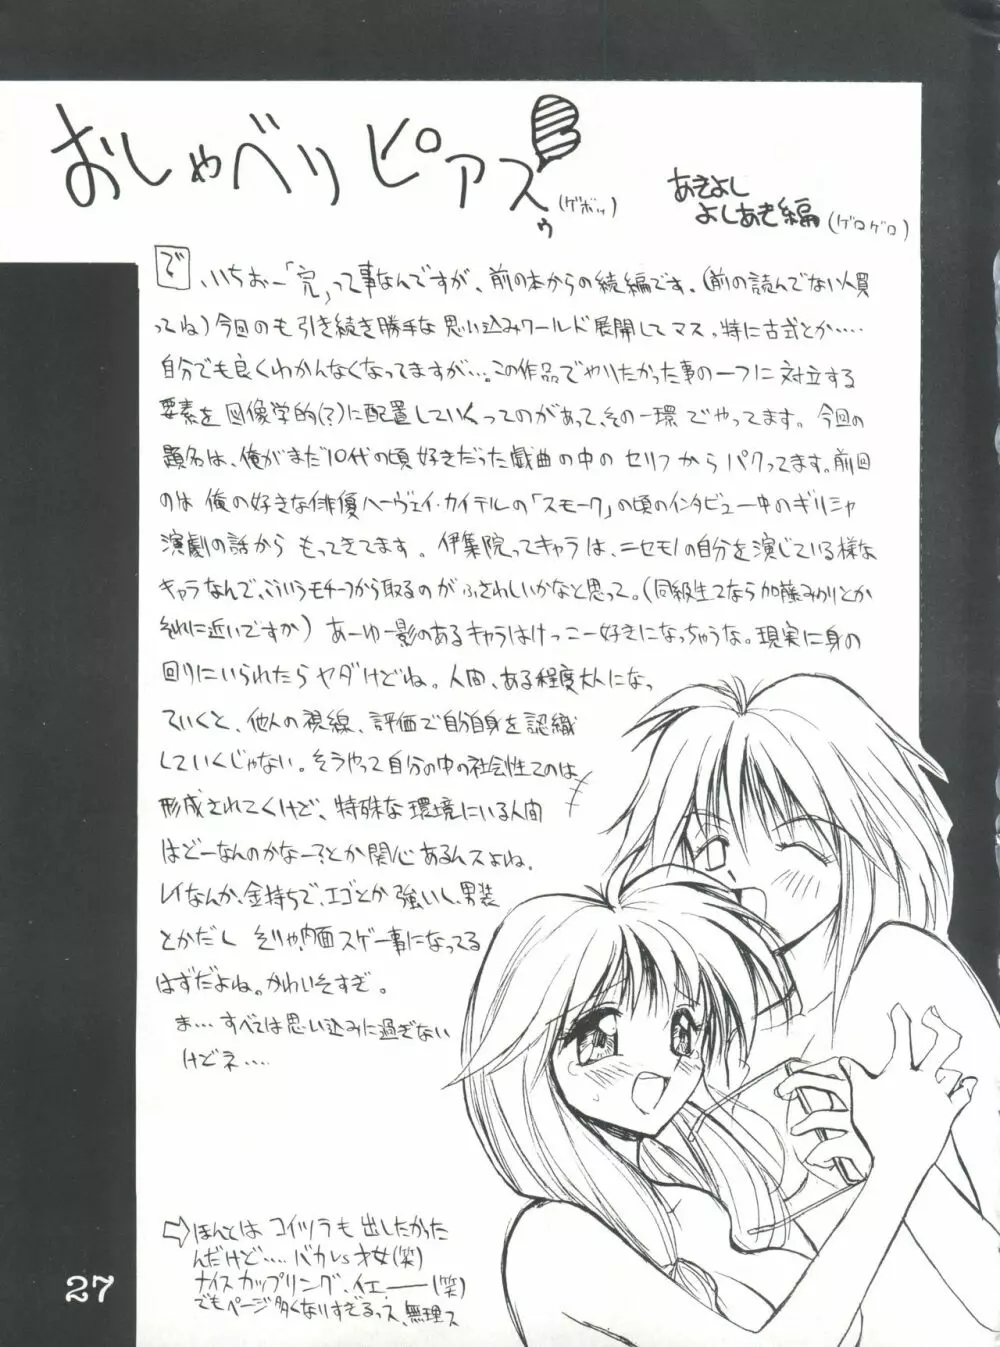 おしゃべりピアスぅ(ゲボッ)
あきよし
よしあき編(ゲロゲロ)
で、いちおー「完」って事なんですが、前の本からの続編です。(前の読んでない人買
ってね)今回のも引き続き勝手な思い込みワールド展開してマス。特に古式とか……
自分でも良くわかんなくなってますが…。この作品でやりたかった事の一つに対立する
要素を図像学的(?)に配置していくってのがあって、その一環でやってます。今回の
題名は、俺がまだ10代の頃好きだった戯曲の中のセリフからパクってます。前回
のは俺の好きな俳優ハーヴェイ・カイテルの「スモーク」の頃のインタビュー中のギリシャ
演劇の話からもってきてます。伊集院ってキャラは、ニセモノの自分を演じている様な
キャラなんで、こういうモチーフから取るのがふさわしいかなと思って。(同級生てなら加藤みのりとか
それに近いですか)あーゆー影のあるキャラはけっこー好きになっちゃうな。現実に身の
回りにいられたらヤダけどね。人間、ある程度大人になっ
ていくと、他人の視線、評価で自分自身を認識
していくじゃない。そうやって自分の中の社会性てのは
形成されてくけど、特殊な環境にいる人間
はどーなんのかなー?とか関心あるんスよね。
レイなんか、金持ちで、エゴとか強いし、男装
とかだし そりゃ、内面スゲー事になってる
はずだよね。かわいそすぎ。
ま…すべては思い込みに過ぎない
けどネ….
⇨ほんとはコイツラも出したかった
んだけど….バカvs才女(笑)
ナイスカップリング、イエー——(笑)
でもページ多くなりすぎるっス、無理ス
27